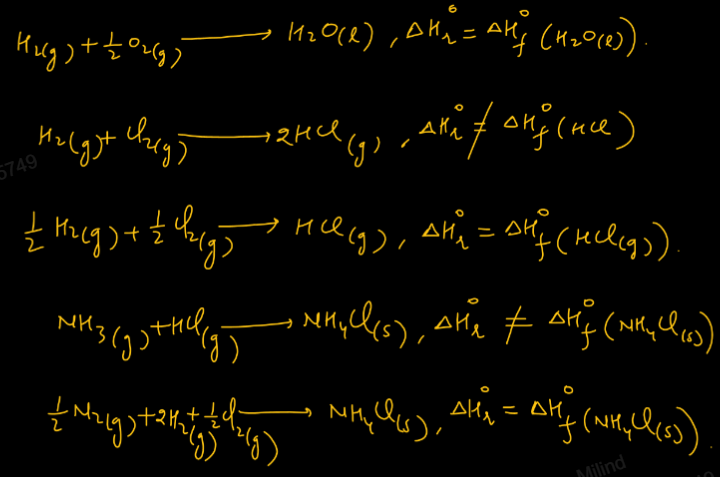 H₂(g) + ½ O₂(g) ⟶ H₂O(l), ΔH°ᵣ = ΔH°f (H₂O(l)).
H₂(g) + Cl₂(g) ⟶ 2HCl(g), ΔH°ᵣ ≠ ΔH°f (HCl)
5749
½ H₂(g) + ½ Cl₂(g) ⟶ HCl(g), ΔH°ᵣ = ΔH°f (HCl(g)).
NH₃(g) + HCl(g) ⟶ NH₄Cl(s), ΔH°ᵣ ≠ ΔH°f (NH₄Cl(s))
½ N₂(g) + 2H₂(g) + ½ Cl₂(g) ⟶ NH₄Cl(s), ΔH°ᵣ = ΔH°f (NH₄Cl(s)).
Milind